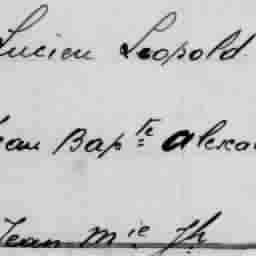 Lucien Leopold
Jean Bapte alexa
Jean Mie Jh